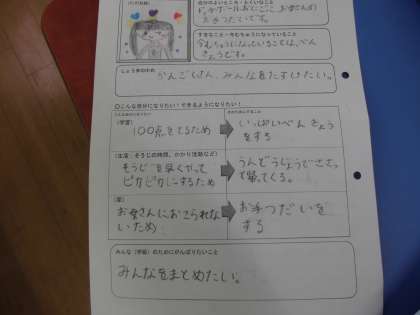 ドッヂボールおにごこ、お母さんの
お手つだいです。
すきなこと・今むちゅうになっていること
今むちゅうになっていることは、べん
きょうです。
しょう来のゆめ
かんごくさん、みんなをたすけたい。
○こんな自分になりたい！できるようになりたい！
(学習)
100点をとるため
いっぱいべんきょう
をする
(生活：そうじの時間、かかり活動など)
そうじを早くやって
ピカピカにーするため
うんどうじょうでささっ
て帰ってくる。
(家)
お母さんにおこられな
いため
お手つだいを
する
みんな(学級)のためにがんばりたいこと
みんなをまとめたい。